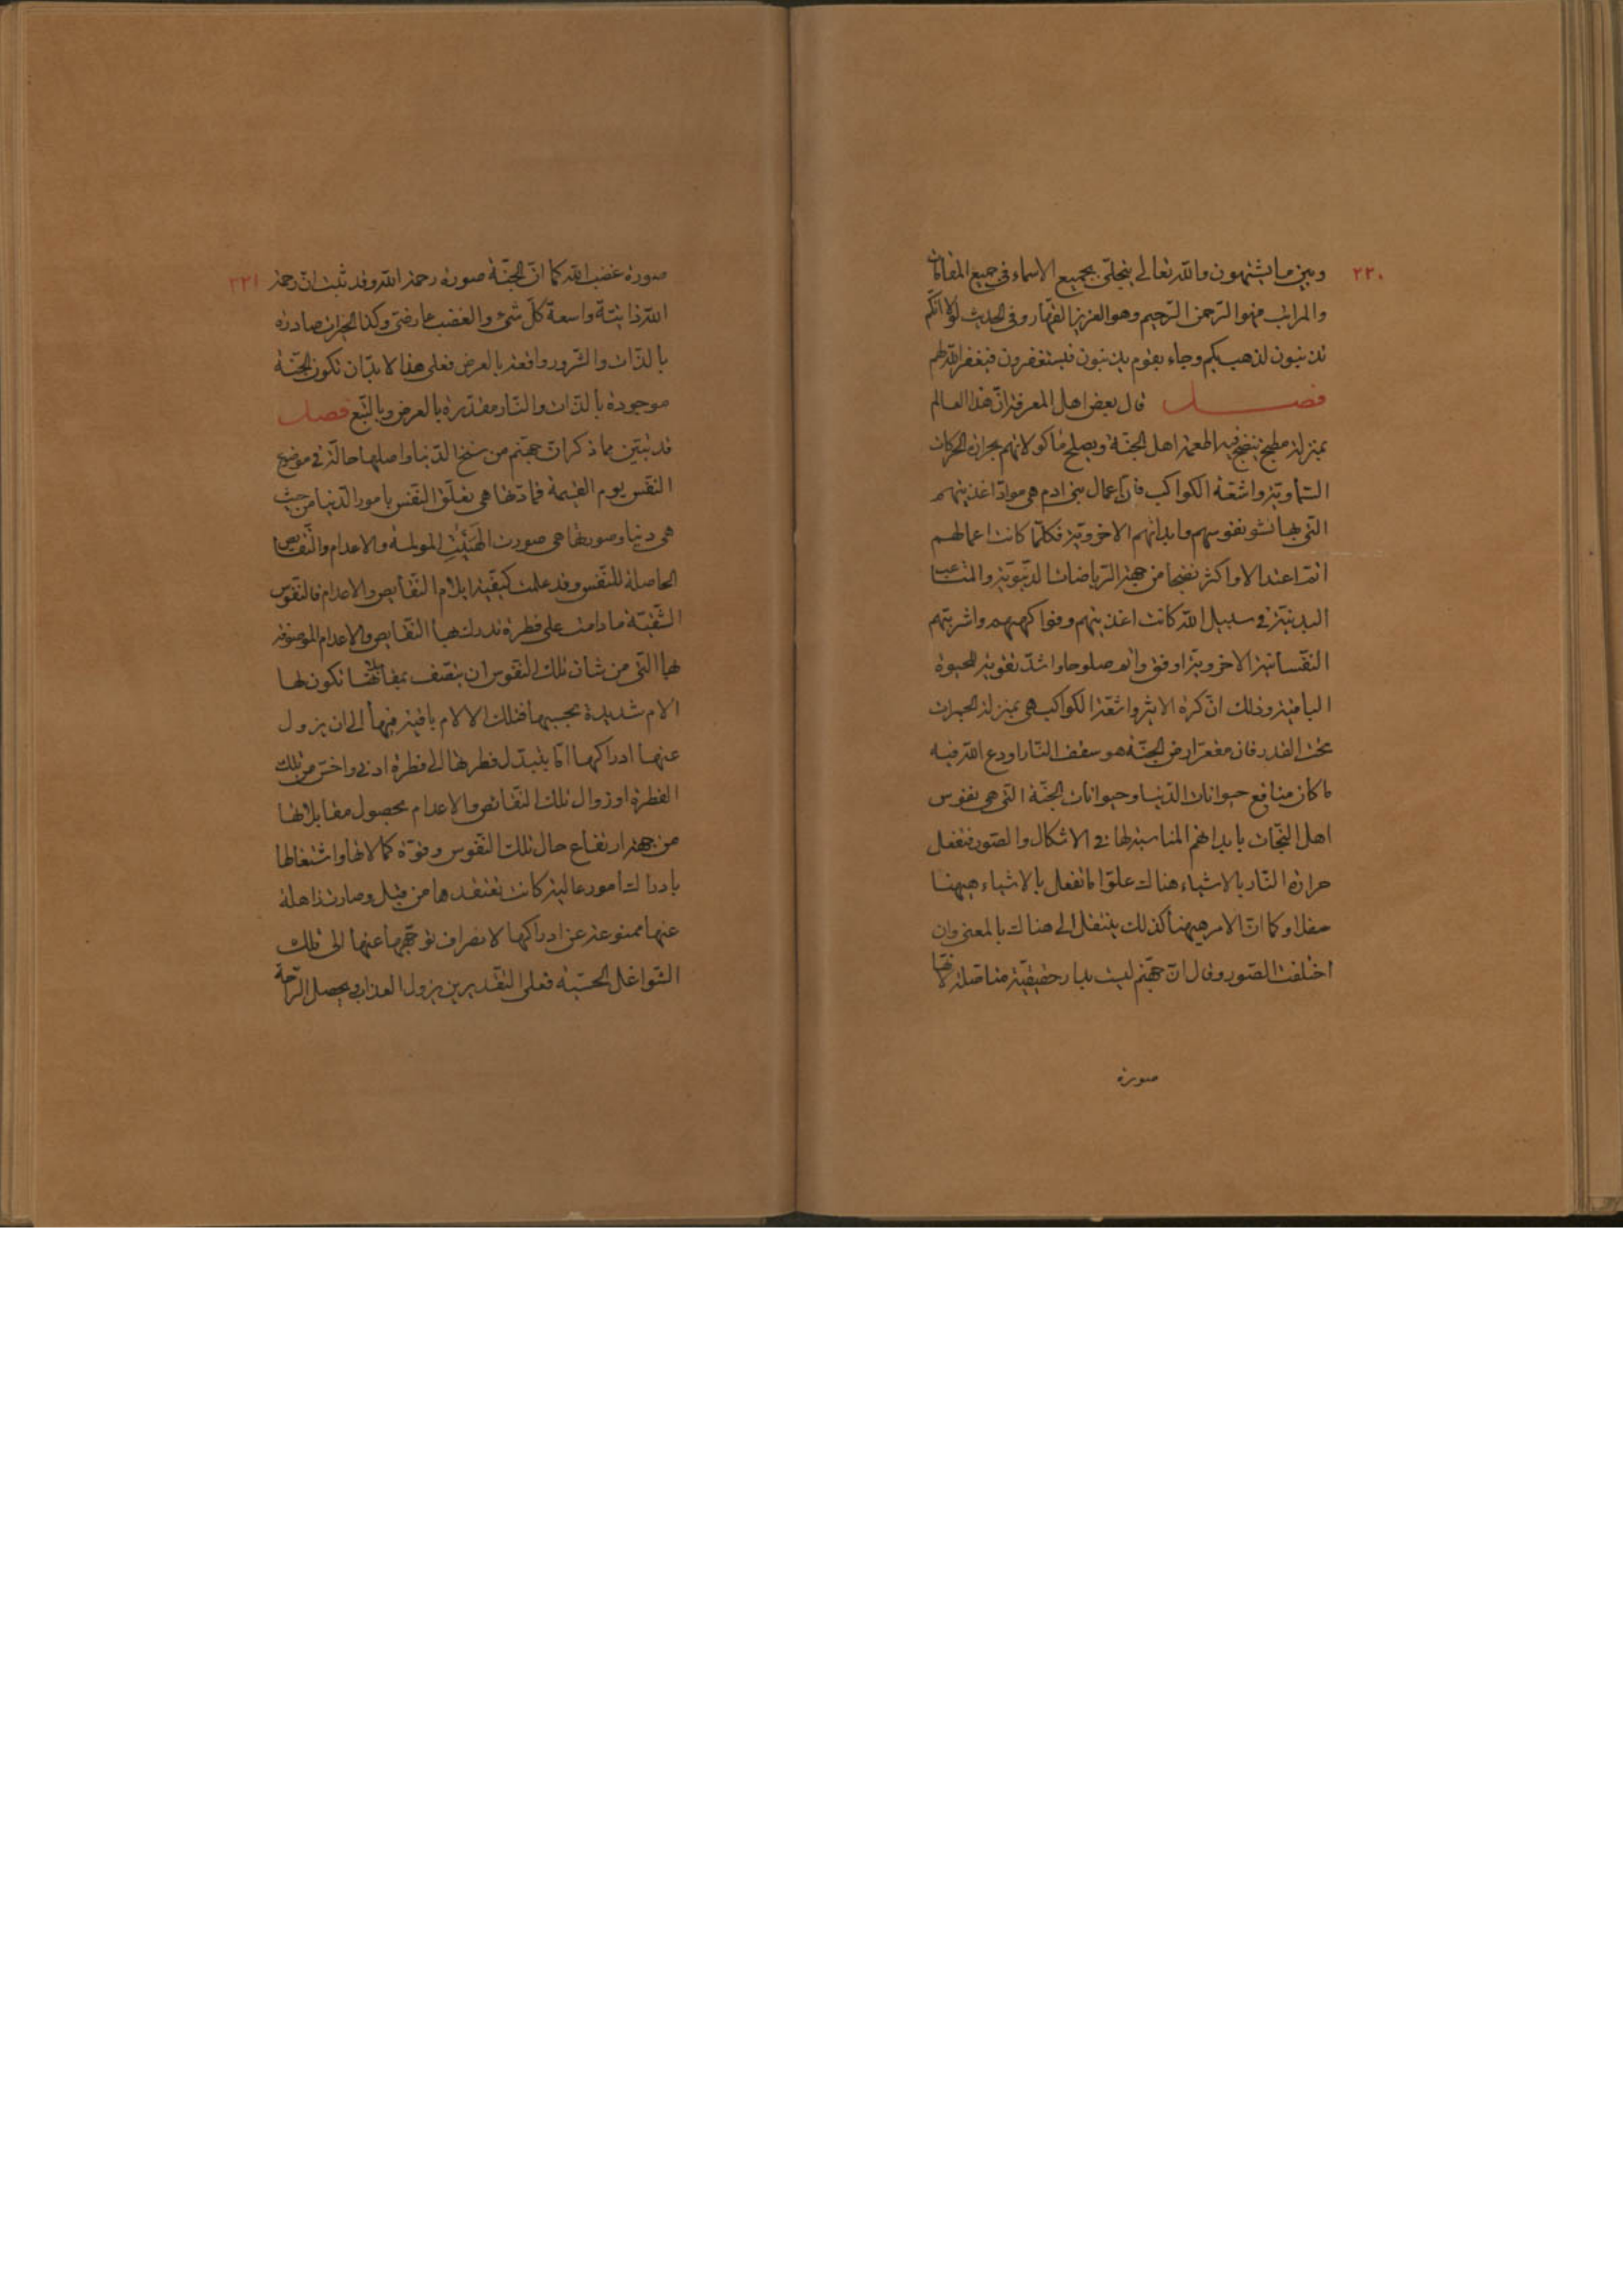 ٢٣٠
وبين ما يشتهون والله تعالى يتجلّى بجميع الاسماء فى جميع المقامات
والمراتب فهو الرّحمن الرّحيم وهو العزيز القهّار وفى الحديث لولا انّكم
تذنبون لذهب بكم وجاء بقوم يذنبون فيستغفرون فيغفر الله لهم
فصل قال بعض اهل المعرفة انّ هذا العالم
بمنزلة مطبخ ينضج فيه اطعمة اهل الجنّة ويصلح ماكولاتهم بحرارة الحركات
السّماويّة واشعّة الكواكب فانّ اعمال بنى ادم هى موادّ اغذيتهم
الّتى بها نشو نفوسهم وابدانهم الاخرويّة فكلّما كانت اعمالهم
اتمّ اعتدالا واكثر نضجا من جهة الرّياضات الدّنيويّة والمتاعب
البدنيّة فى سبيل الله كانت اغذيتهم وفواكههم واشربتهم
النفسانيّة الاخرويّة اوفق واتم صلوحا واشدّ تقوية للحيوة
الباقية وذلك انّ كرة الاثير واشعّة الكواكب هى بمنزلة الجمرات
تحت القدر فان مقعّر ارض الجنّة هو سقف النّار اودع الله فيه
ما كان منافع حيوانات الدّنيا وحيوانات الجنّة الّتى هى نفوس
اهل النّجات بابدانهم المناسبة لها فى الاشكال والصّور فتفعل
حرارة النّار بالاشياء هناك علوّا ما تفعل بالاشياء هيهنا
سفلا وكما انّ الامر هيهنا كذلك ينتقل الى هناك بالمعنى وان
اختلفت الصّور وقال انّ جهنّم ليست بدار حقيقيّة متاصّلة لانّها
صورة
٢٣١
صورة غضب الله كما انّ الجنّة صورة رحمة الله وقد ثبت انّ رحمة
الله ذاتيّة واسعة كلّ شىء والغضب عارضىّ وكذا الخيرات صادرة
بالذّات والشّرور واقعة بالعرض فعلى هذا لا بدّ ان تكون الجنّة
موجودة بالذّات والنّار مقدّرة بالعرض وبالتّبع فصل
قد تبيّن مما ذكر انّ جهنّم من سنخ الدّنيا واصلها حالة فى موضع
النّفس يوم القيمة فمادّتها هى تعلّق النّفس بامور الدّنيا من حيث
هى دنيا وصورتها هى صورت الهيئت المولمة والاعدام والنّقايص
الحاصلة للنّفس وقد علمت كيفيّة ايلام النّقايص والاعدام فالنّفوس
الشّقيّة ما دامت على فطرة تدرك بها النّقايص والاعدام الموصوفة
بها الّتى من شان تلك النّفوس ان يتّصف بمقابلاتها تكون لها
الام شديدة بحسبها فتلك الالام باقية فيها الى ان يزول
عنها ادراكها امّا بتبدّل فطرتها الى فطرة ادنى واخسّ من تلك
الفطرة او زوال تلك النّقائص والاعدام بحصول مقابلاتها
من جهة ارتفاع حال تلك النّفوس وقوّة كمالاتها واشتغالها
بادراك امور عالية كانت تعتقدها من قبل وصارت ذاهلة
عنها ممنوعة عن ادراكها لانصراف توجّهها عنها الى تلك
الشّواغل الحسّيّة فعلى التّقديرين يزول العذاب ويحصل الرّاحة